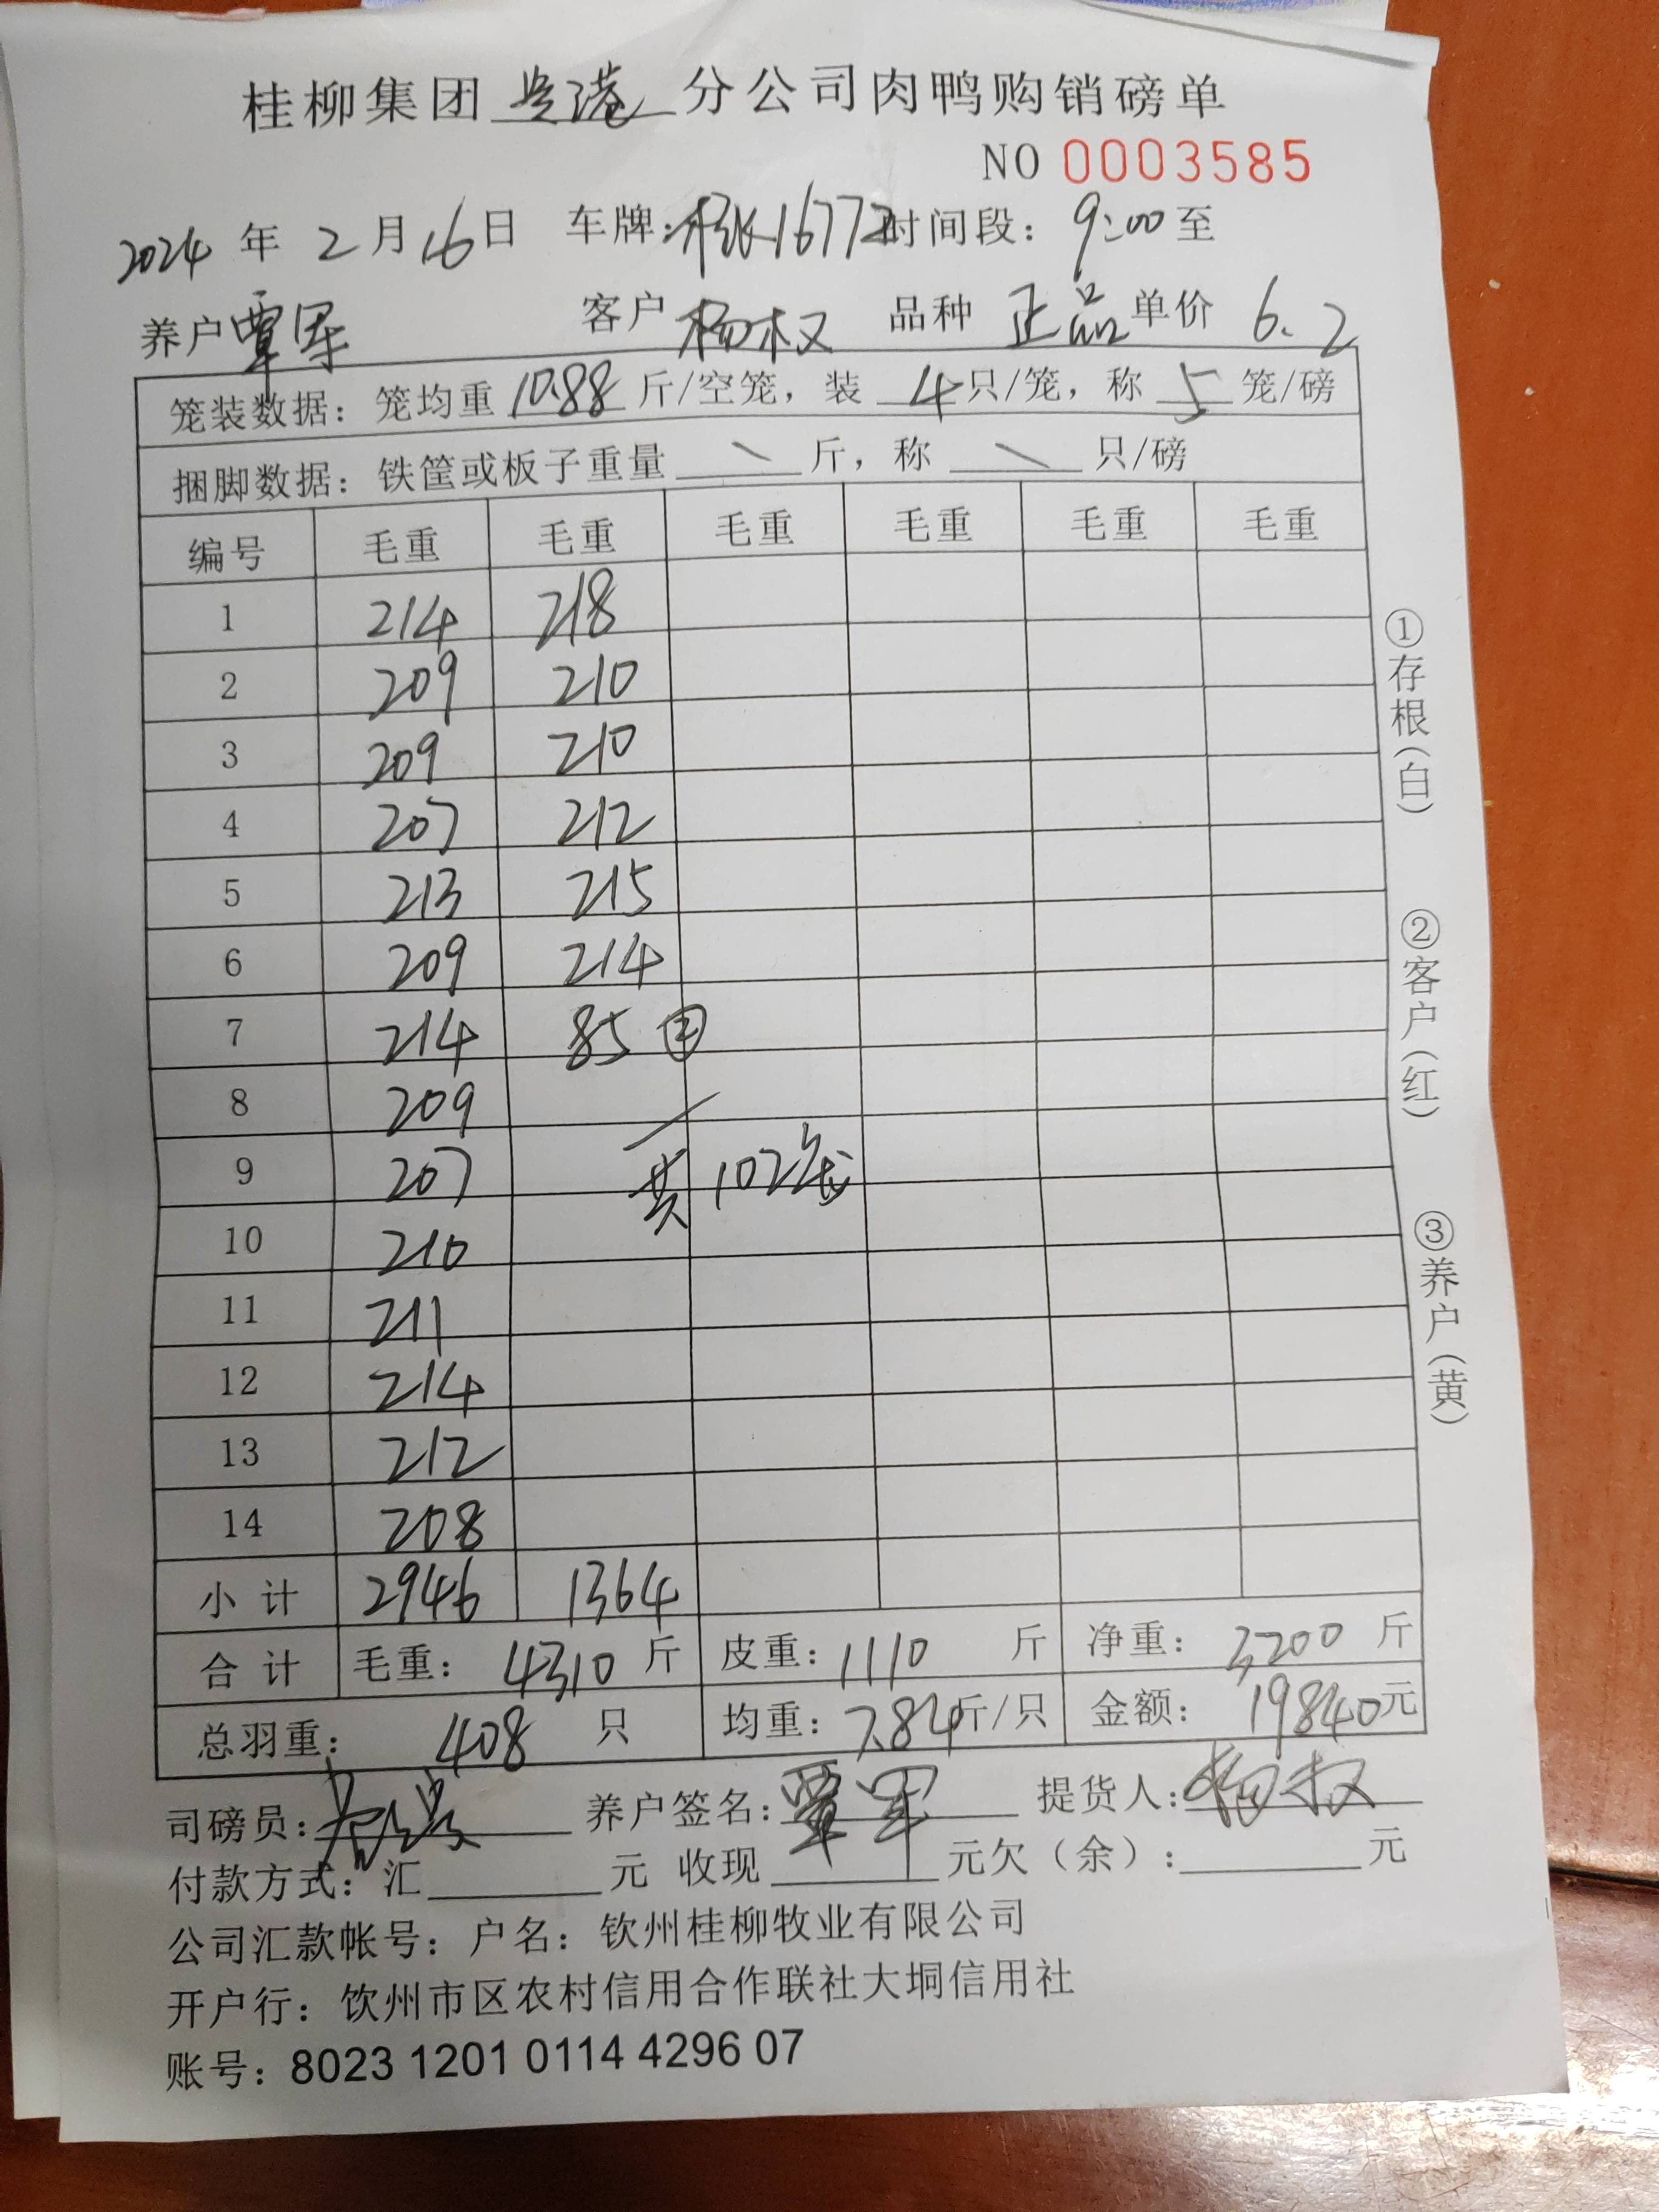 桂柳集团贵港分公司肉鸭购销磅单
NO 0003585
2024年2月16日 车牌: 16772 时间段: 9:00至
养户覃军 客户杨权 品种 正品 单价 6.2
笼装数据: 笼均重10.88斤/空笼, 装4只/笼, 称5笼/磅
捆脚数据: 铁筐或板子重量\斤, 称\只/磅
编号 毛重 毛重 毛重 毛重 毛重 毛重
1 214 218
2 209 210
3 209 210
4 207 212
5 213 215
6 209 214
7 214 85 ②
8 209
9 207 共102笼
10 210
11 211
12 214
13 212
14 208
小计 2946 1364
合计 毛重: 4310斤 皮重: 1110斤 净重: 3200斤
总羽重: 408只 均重: 7.84斤/只 金额: 19840元
司磅员: 养户签名: 覃军 提货人: 杨权
付款方式: 汇 元 收现 元欠(余): 元
公司汇款帐号: 户名: 钦州桂柳牧业有限公司
开户行: 钦州市区农村信用合作联社大垌信用社
账号: 8023 1201 0114 4296 07
①存根(白) ②客户(红) ③养户(黄)